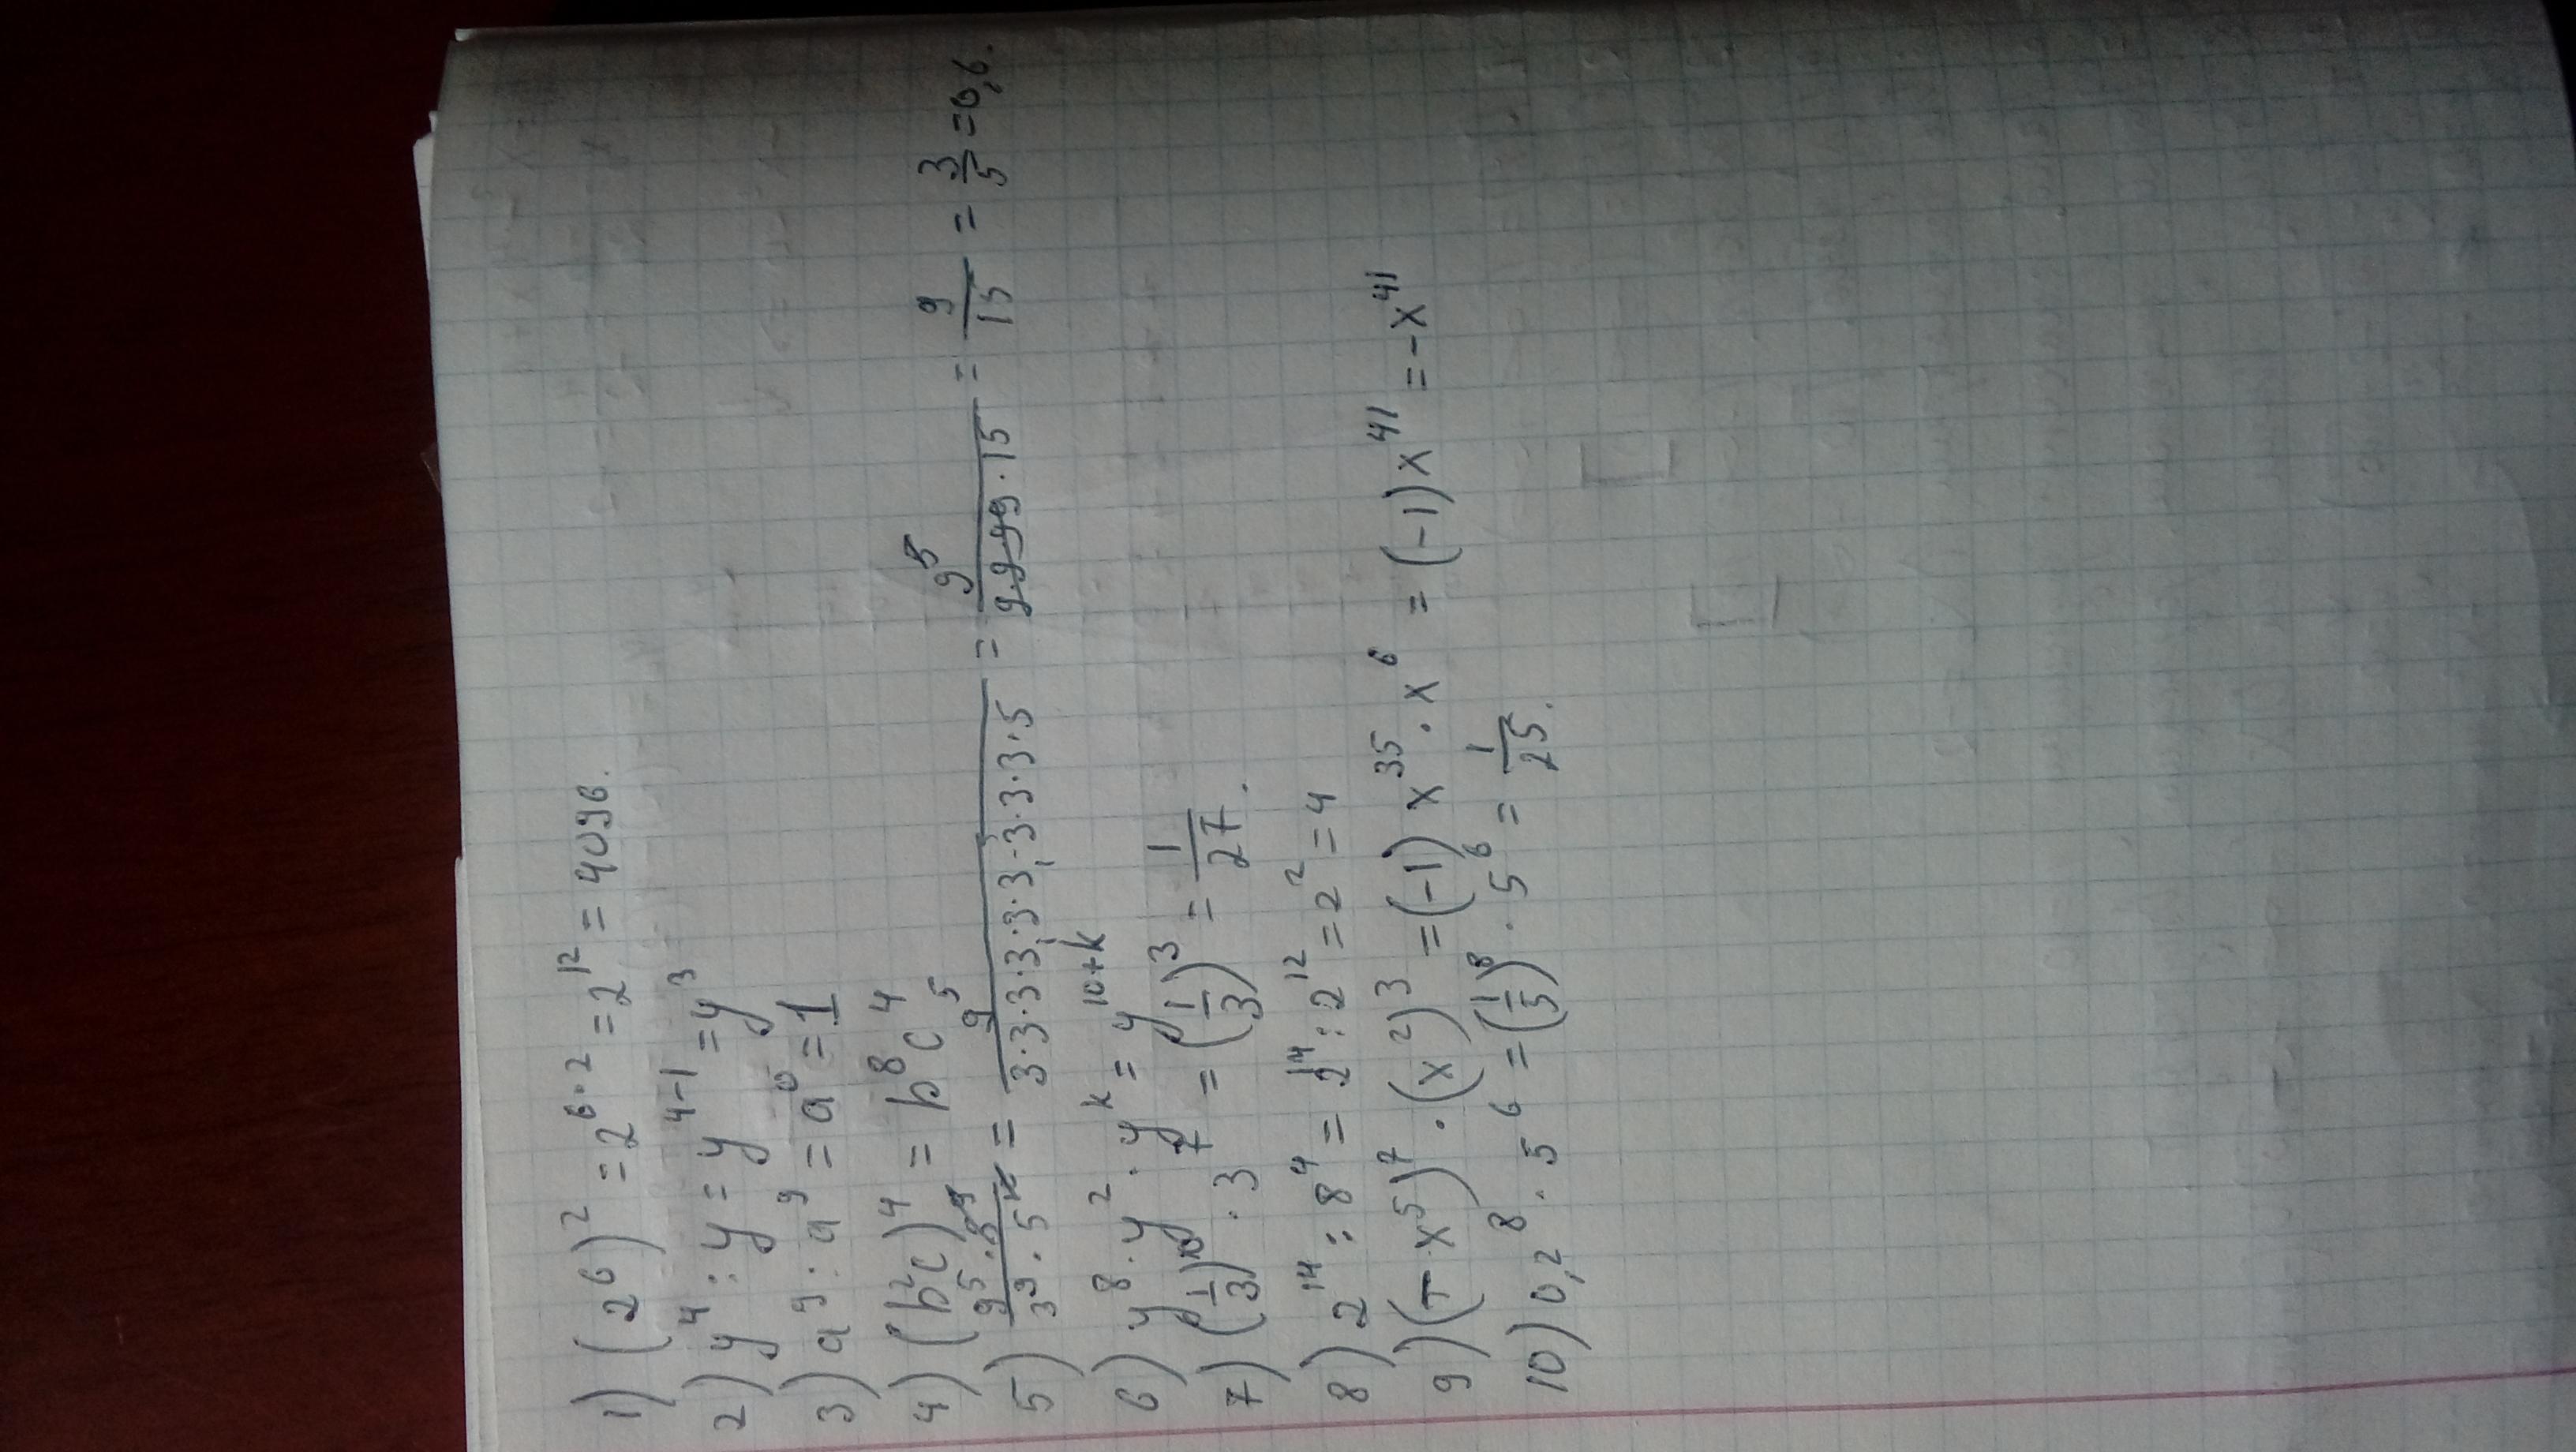 1) (2^6)^2 = 2^{6·2} = 2^{12} = 4096.
2) y^4 : y = y^{4-1} = y^3
3) a^9 : a^9 = a^0 = 1
4) (b^2c)^4 = b^8c^4
5) \frac{9^5·5^9}{3^9·5^{10}} = \frac{9^5}{3·3·3·3·3·3·3·3·3·5} = \frac{9^5}{9·9·9·9·15} = \frac{9}{15} = \frac{3}{5} = 0,6.
6) y^8·y^2·y^k = y^{10+k}
7) (\frac{1}{3})^{10}·3^7 = (\frac{1}{3})^3 = \frac{1}{27}.
8) 2^{14} : 8^4 = 2^{14} : 2^{12} = 2^2 = 4
9) (-x^5)^7·(x^2)^3 = (-1)x^{35}·x^6 = (-1)x^{41} = -x^{41}
10) 0,2^8·5^6 = (\frac{1}{5})^8·5^6 = \frac{1}{25}.